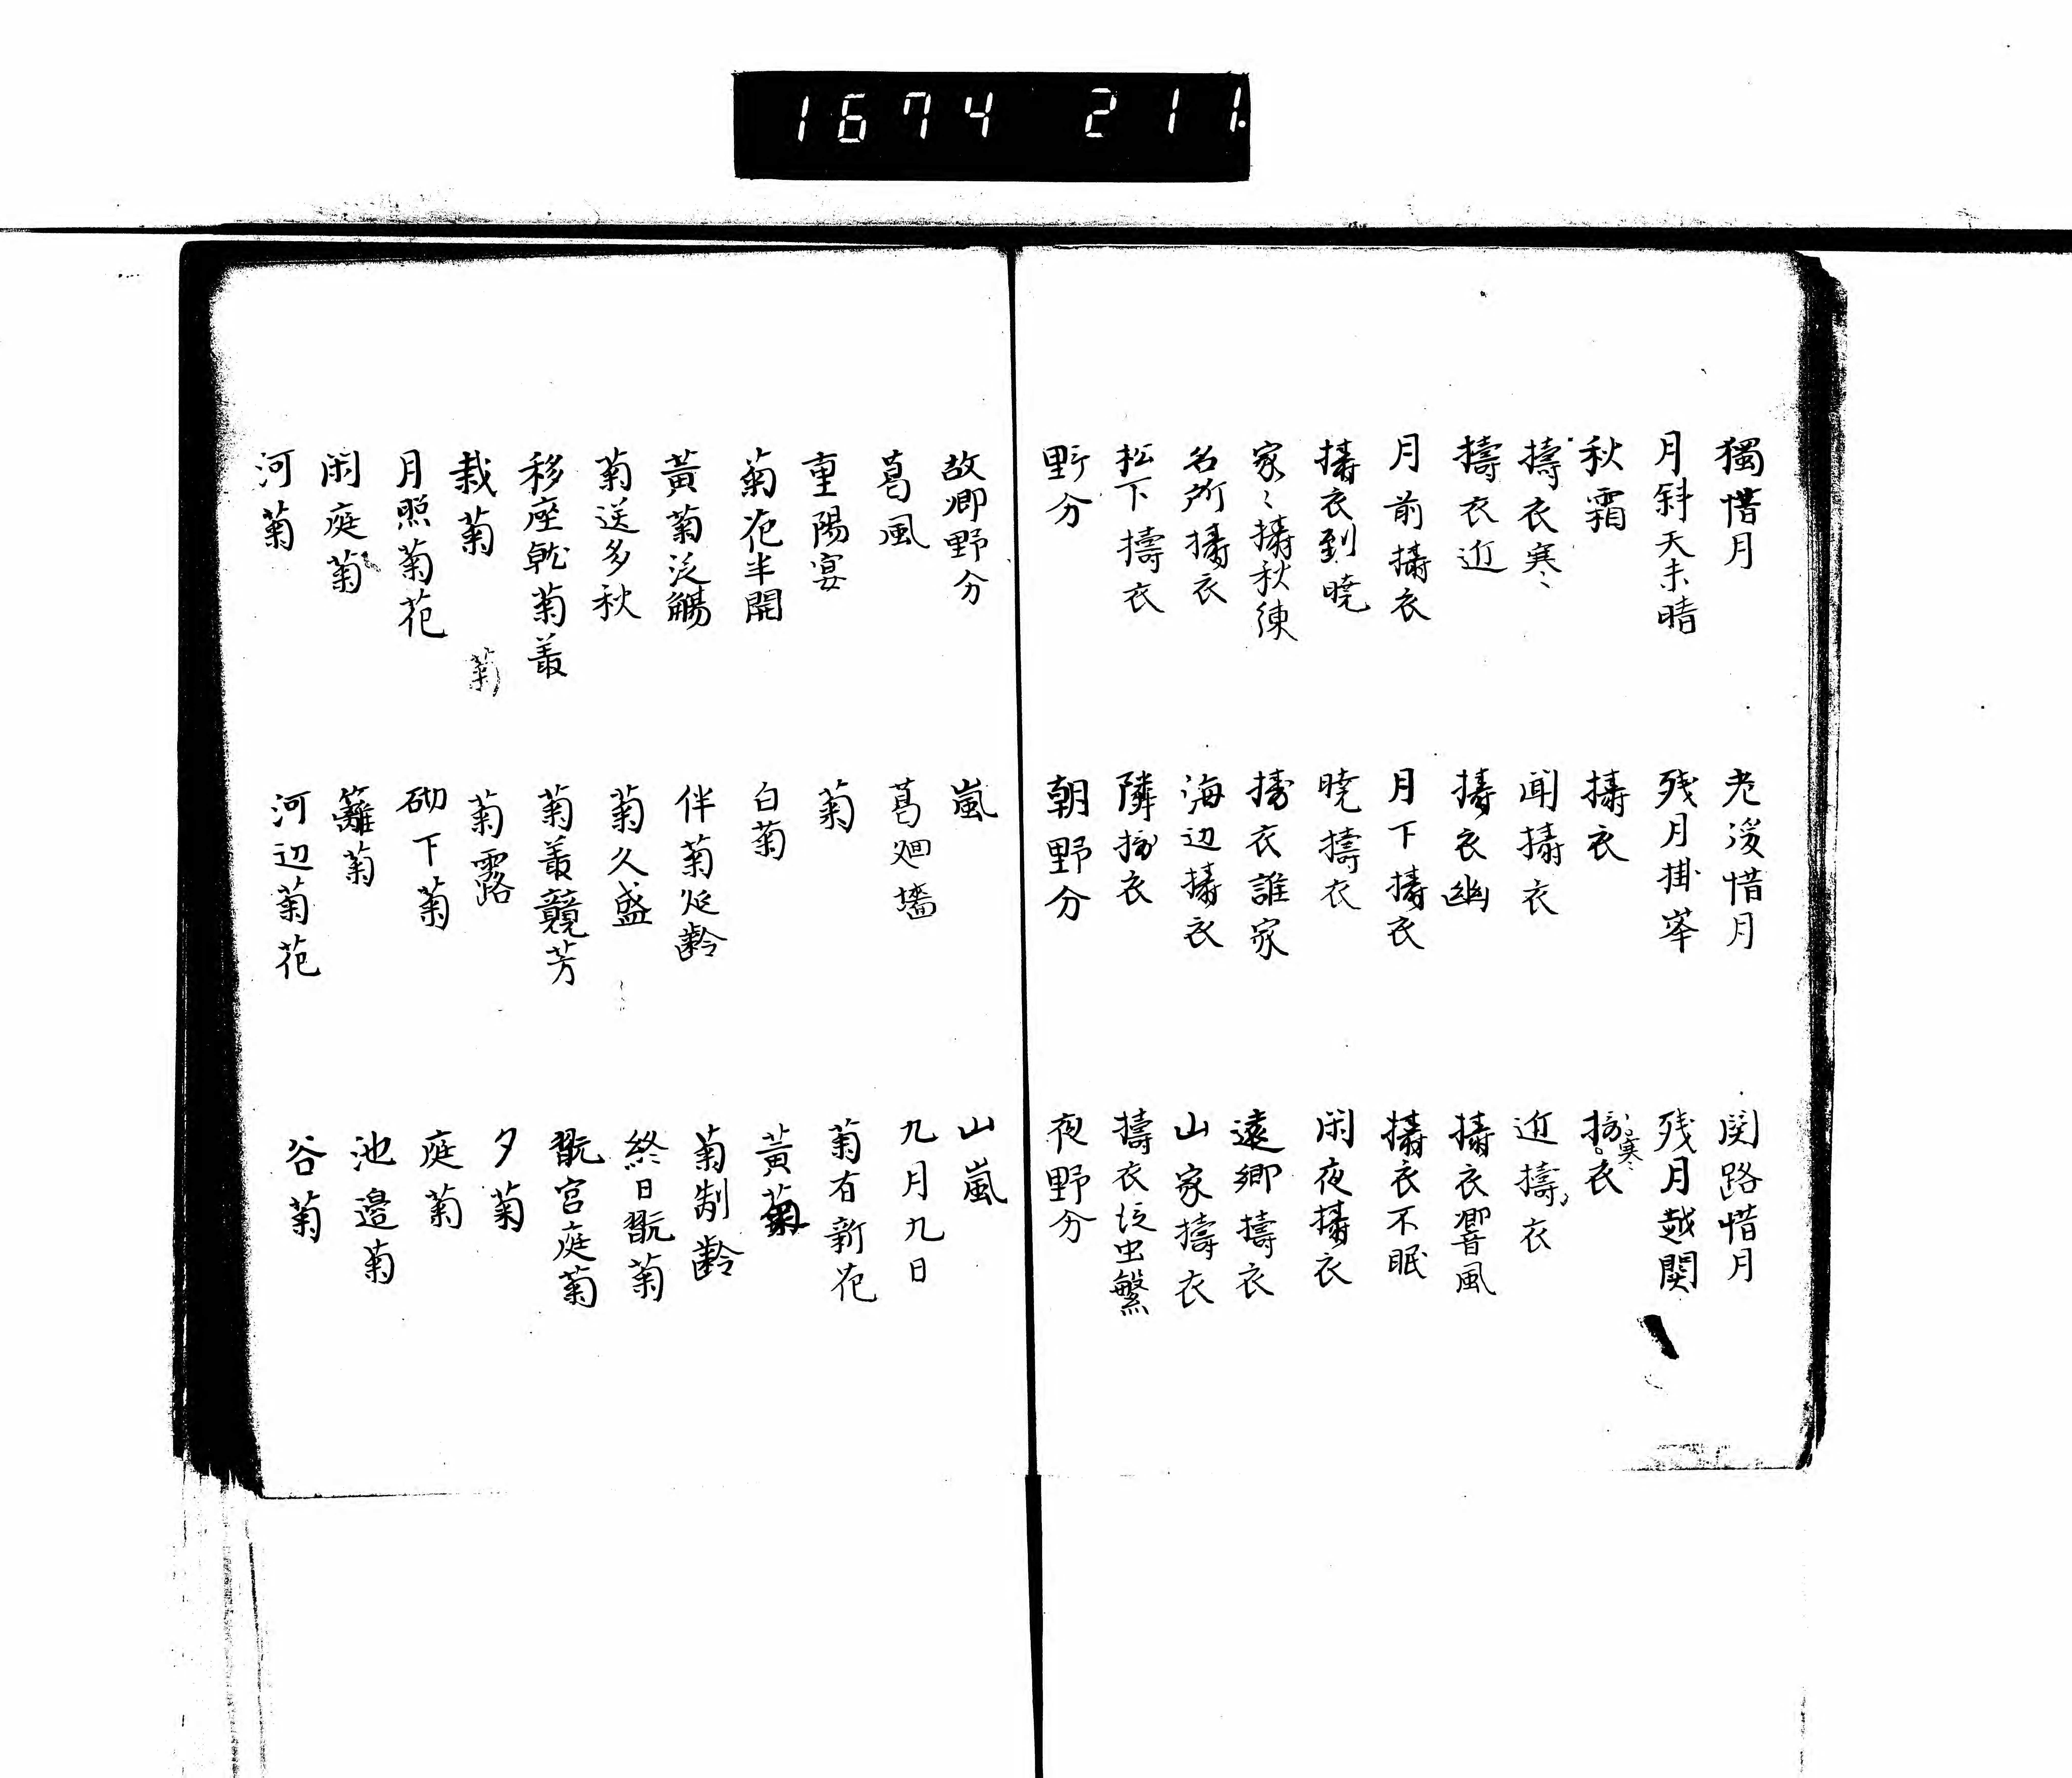 1674 211.
獨惜月 老後惜月 関路惜月
月斜天未晴 残月掛峯 残月越関
秋霜 擣衣 擣寒衣
擣衣寒 聞擣衣 近擣衣
擣衣近 擣衣幽 擣衣響風
月前擣衣 月下擣衣 擣衣不眠
擣衣到暁 暁擣衣 閑夜擣衣
家〻擣秋練 擣衣誰家 遠郷擣衣
名所擣衣 海辺擣衣 山家擣衣
松下擣衣 隣擣衣 擣衣伝虫繁
野分 朝野分 夜野分
故郷野分 嵐 山嵐
葛風 葛廻墻 九月九日
重陽宴 菊 菊有新花
菊花半開 白菊 黄菊
黄菊泛觴 伴菊延齢 菊制齢
菊送多秋 菊久盛 終日翫菊
移座就菊叢 菊叢競芳 翫宮庭菊
栽菊 菊露 夕菊
月照菊花 砌下菊 庭菊
閑庭菊 籬菊 池邉菊
河菊 河辺菊花 谷菊